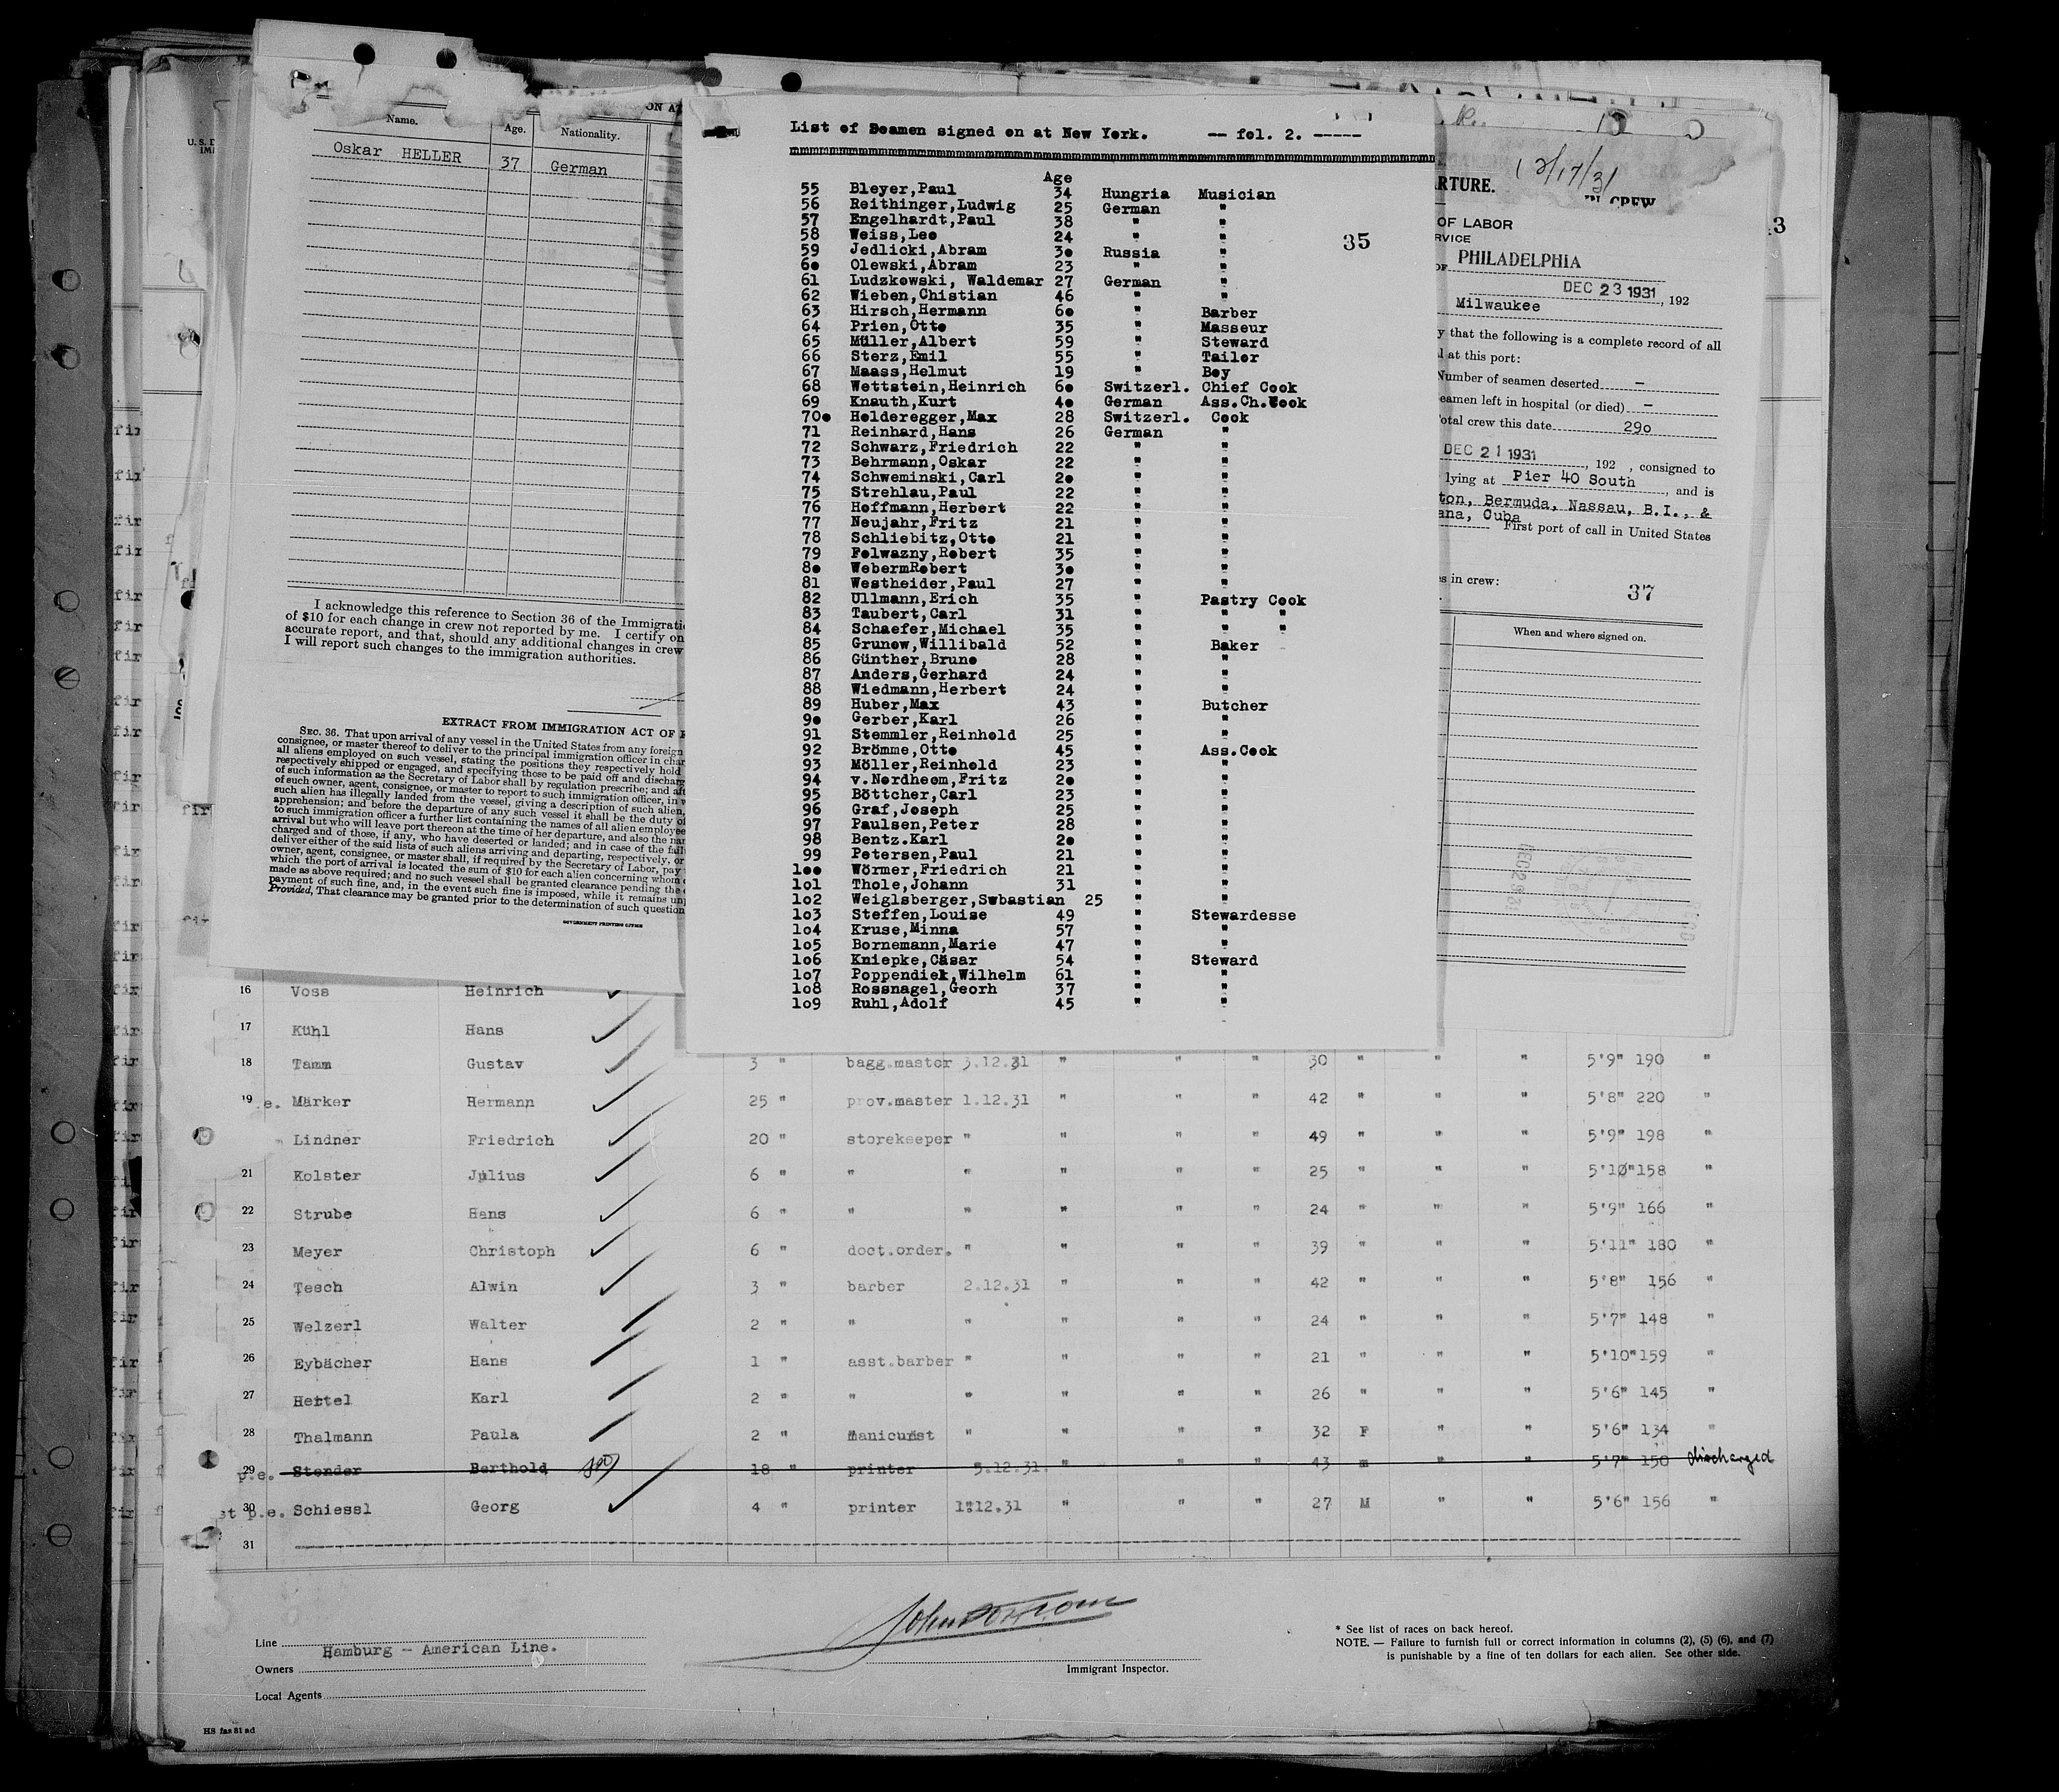 Name. Age. Nationality.
Oskar HELLER 37 German
I acknowledge this reference to Section 36 of the Immigrati
of $10 for each change in crew not reported by me. I certify on
accurate report, and that, should any additional changes in crew
I will report such changes to the immigration authorities.
EXTRACT FROM IMMIGRATION ACT OF
SEC. 36. That upon arrival of any vessel in the United States from any foreign
consignee, or master thereof to deliver to the principal immigration officer in char
all aliens employed on such vessel, stating the positions they respectively hold
respectively shipped or engaged, and specifying those to be paid off and discharg
of such information as the Secretary of Labor shall by regulation prescribe; and aft
of such owner, agent, consignee, or master to report to such immigration officer, in
such alien has illegally landed from the vessel, giving a description of such alien,
apprehension; and before the departure of any such vessel it shall be the duty of
to such immigration officer a further list containing the names of all alien employee
arrival but who will leave port thereon at the time of her departure, and also the nam
charged and of those, if any, who have deserted or landed; and in case of the fail
deliver either of the said lists of such aliens arriving and departing, respectively, or
owner, agent, consignee, or master shall, if required by the Secretary of Labor, pay
which the port of arrival is located the sum of $10 for each alien concerning whom
made as above required; and no such vessel shall be granted clearance pending the
payment of such fine, and, in the event such fine is imposed, while it remains un
Provided, That clearance may be granted prior to the determination of such question
GOVERNMENT PRINTING OFFICE
List of Seamen signed on at New York. -- fol. 2. -----
Age
55 Bleyer,Paul 34 Hungria Musician
56 Reithinger,Ludwig 25 German "
57 Engelhardt,Paul 38 " "
58 Weiss,Leo 24 " "
35
59 Jedlicki,Abram 3o Russia "
6o Olewski,Abram 23 " "
61 Ludzkowski, Waldemar 27 German "
62 Wieben,Chistian 46 " "
63 Hirsch,Hermann 6o " Barber
64 Prien,Otto 35 " Masseur
65 Müller,Albert 59 " Steward
66 Sterz,Emil 55 " Tailor
67 Maass,Helmut 19 " Boy
68 Wettstein,Heinrich 6o Switzerl. Chief Cook
69 Knauth,Kurt 4o German Ass.Ch.Cook
70o Holderegger,Max 28 Switzerl. Cook
71 Reinhard,Hans 26 German "
72 Schwarz,Friedrich 22 " "
73 Behrmann,Oskar 22 " "
74 Schweminski,Carl 2o " "
75 Strehlau,Paul 22 " "
76 Hoffmann,Herbert 22 " "
77 Neujahr,Fritz 21 " "
78 Schliebitz,Otto 21 " "
79 Folwazny,Robert 35 " "
8o WebermRobert 3o " "
81 Westheider,Paul 27 " "
82 Ullmann,Erich 35 " Pastry Cook
83 Taubert,Carl 31 " " "
84 Schaefer,Michael 35 " " "
85 Grunow,Willibald 52 " Baker
86 Günther,Bruno 28 " "
87 Anders,Gerhard 24 " "
88 Wiedmann,Herbert 24 " "
89 Huber,Max 43 " Butcher
9o Gerber,Karl 26 " "
91 Stemmler,Reinhold 25 " "
92 Brömme,Otto 45 " Ass.Cook
93 Möller,Reinhold 23 " "
94 v.Nordheom,Fritz 2o " "
95 Böttcher,Carl 23 " "
96 Graf,Joseph 25 " "
97 Paulsen,Peter 28 " "
98 Bentz.Karl 2o " "
99 Petersen,Paul 21 " "
1oo Wörmer,Friedrich 21 " "
1o1 Thole,Johann 31 " "
1o2 Weiglsberger,Swbastian 25 " "
1o3 Steffen,Louise 49 " Stewardesse
1o4 Kruse,Minna 57 " "
1o5 Bornemann,Marie 47 " "
1o6 Kniepke,Cäsar 54 " Steward
1o7 Poppendiek,Wilhelm 61 " "
1o8 Rossnagel,Georh 37 " "
1o9 Ruhl,Adolf 45 " "
12/17/31
RTURE.
IN CREW
OF LABOR
RVICE
3
PHILADELPHIA
DEC 23 1931, 192
Milwaukee
y that the following is a complete record of all
l at this port:
Number of seamen deserted -
eamen left in hospital (or died) -
otal crew this date 29o
DEC 21 1931, 192 , consigned to
lying at Pier 40 South, and is
ton, Bermuda, Nassau, B.I., &
ana, Cuba
First port of call in United States
s in crew:
37
When and where signed on.
16 Voss Heinrich
17 Kühl Hans
18 Tamm Gustav 3 " bagg.master 3.12.31 " " " 30 " " " 5'9" 190 "
19 .e. Märker Hermann 25 " prov.master 1.12.31 " " " 42 " " " 5'8" 220 "
Lindner Friedrich 20 " storekeeper " " " " 49 " " " 5'9" 198 "
21 Kolster Julius 6 " " " " " " 25 " " " 5'10"158 "
22 Strube Hans 6 " " " " " " 24 " " " 5'9" 166 "
23 Meyer Christoph 6 " doct.order. " " " " 39 " " " 5'11" 180 "
24 Tesch Alwin 3 " barber 2.12.31 " " " 42 " " " 5'8" 156 "
25 Welzerl Walter 2 " " " " " 24 " " " 5'7" 148 "
26 Eybächer Hans 1 " asst.barber " " " " 21 " " " 5'10"159 "
27 Hertel Karl 2 " " " " " " 26 " " " 5'6" 145 "
28 Thalmann Paula 2 " manicurst " " " " 32 F " " 5'6" 134 "
29 p.e. Stender Berthold 18 " printer 5.12.31. " " " 43 m " " 5'7" 150 discharged
30 st p.e. Schiessl Georg 4 " printer 1.12.31 " " " 27 M " " 5'6" 156 "
31
Line
Hamburg - American Line.
Owners
Local Agents
Immigrant Inspector.
* See list of races on back hereof.
NOTE. — Failure to furnish full or correct information in columns (2), (5) (6), and (7)
is punishable by a fine of ten dollars for each alien. See other side.